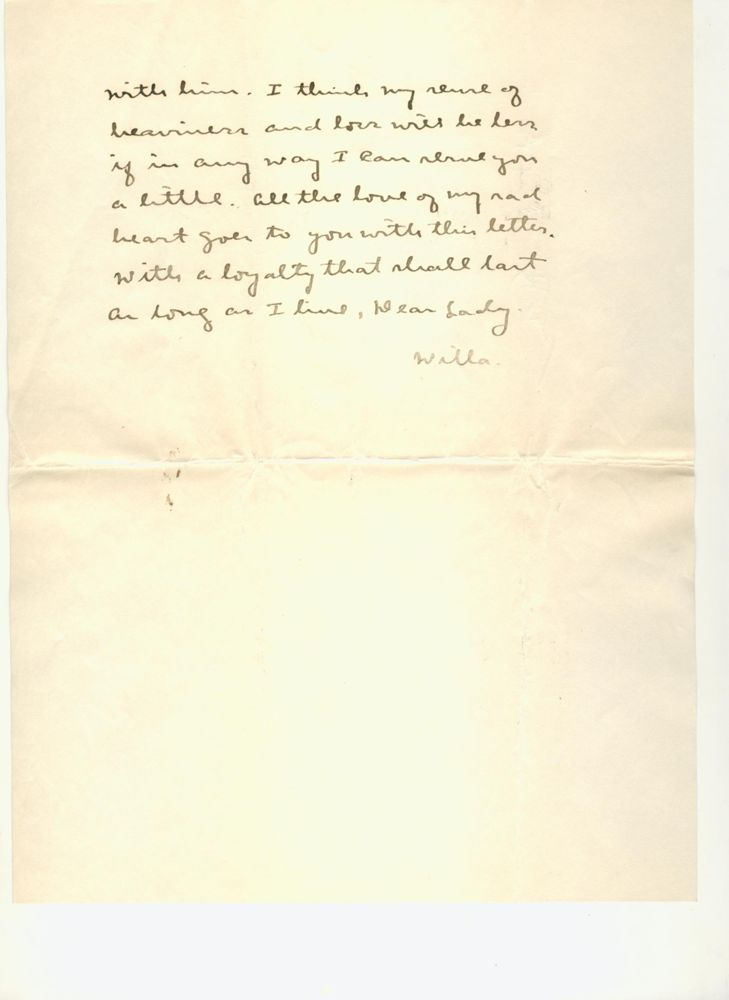 with him. I think my sense of
heaviness and loss will be less
if in any way I can serve you
a little. All the love of my sad
heart goes to you with this letter.
With a loyalty that shall last
as long as I live, Dear Lady.
Willa.